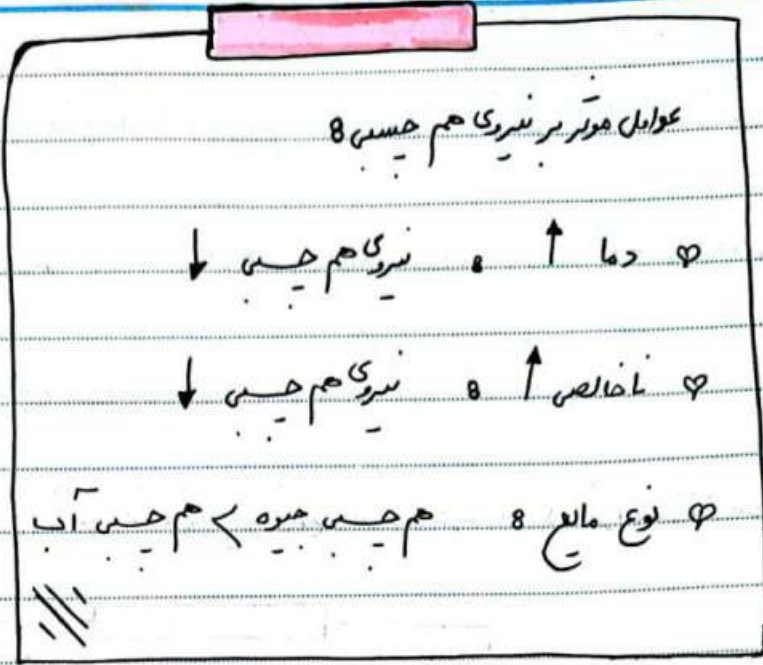 عوامل موثر بر نیروی هم چسبی :
♡ دما ↑ : نیروی هم چسبی ↓
♡ ناخالصی ↑ : نیروی هم چسبی ↓
♡ نوع مایع : هم چسبی جیوه > هم چسبی آب